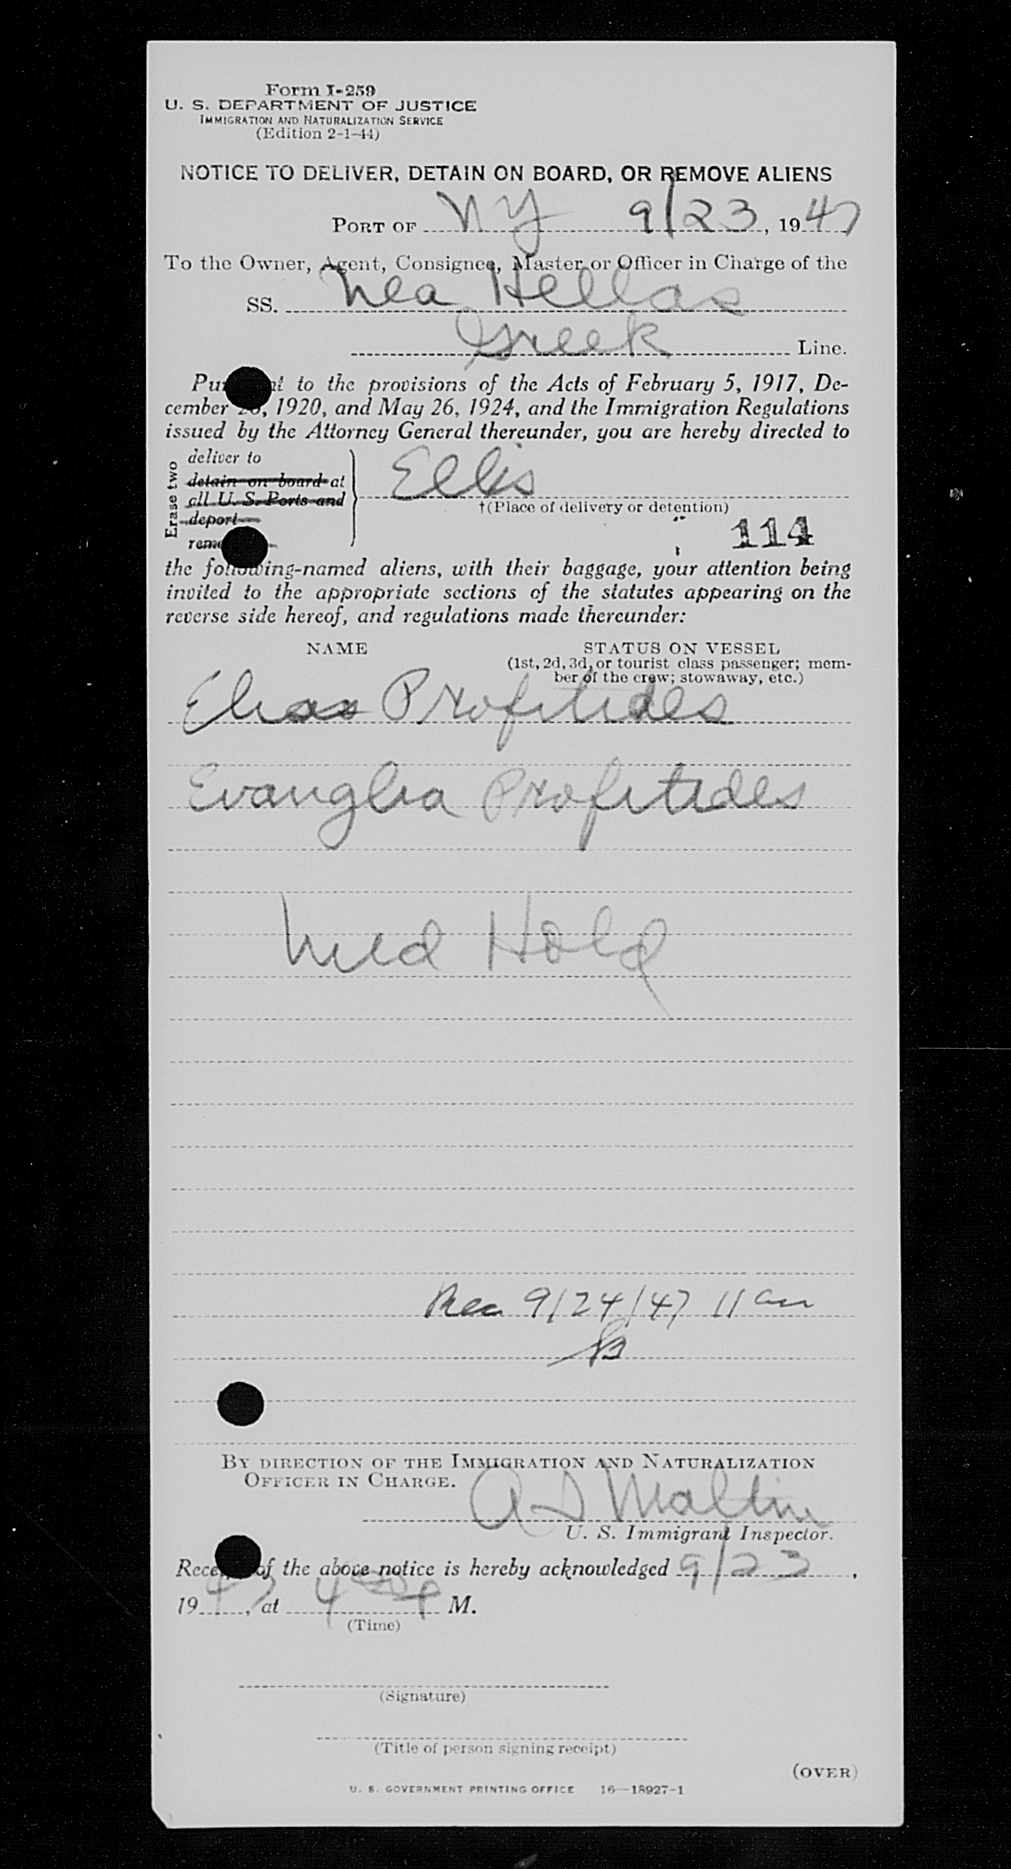 Form I-259
U. S. DEPARTMENT OF JUSTICE
IMMIGRATION AND NATURALIZATION SERVICE
(Edition 2-1-44)
NOTICE TO DELIVER, DETAIN ON BOARD, OR REMOVE ALIENS
PORT OF NY 9/23, 1947
To the Owner, Agent, Consignee, Master or Officer in Charge of the
SS. Nea Hellas
Greek Line.
to the provisions of the Acts of February 5, 1917, De-
cember 1920, and May 26, 1924, and the Immigration Regulations
issued by the Attorney General thereunder, you are hereby directed to
Erase two
deliver to
detain on board at
all U. S. Ports and
deport
Ellis
†(Place of delivery or detention)
114
the following-named aliens, with their baggage, your attention being
invited to the appropriate sections of the statutes appearing on the
reverse side hereof, and regulations made thereunder:
NAME STATUS ON VESSEL
(1st, 2d, 3d, or tourist class passenger; mem-
ber of the crew; stowaway, etc.)
Elias Profitides
Evanglia Profitides
Med Hold
Rec 9/24/47 11 am
BY DIRECTION OF THE IMMIGRATION AND NATURALIZATION
OFFICER IN CHARGE.
U. S. Immigrant Inspector.
of the above notice is hereby acknowledged 9/23,
1947, at 4 P M.
(Time)
(Signature)
(Title of person signing receipt)
(OVER)
U. S. GOVERNMENT PRINTING OFFICE 16—18927-1